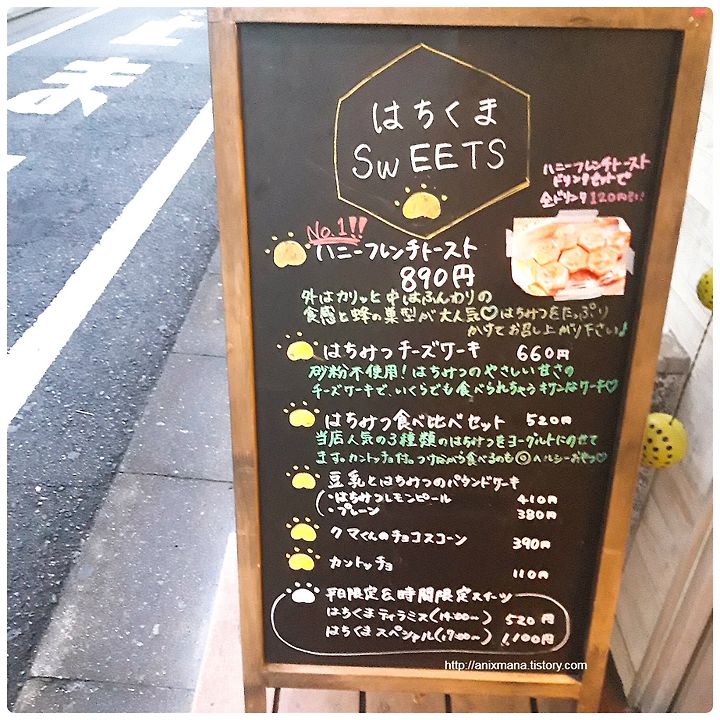 はちくま
SWEETS
ハニーフレンチトースト
ドリンクセットで
全ドリンク120円引き!
No.1!!
ハニーフレンチトースト
890円
外はカリッと中はふんわりの
食感と蜂の巣型が大人気♡はちみつをたっぷり
かけてお召し上がり下さい♪
はちみつチーズケーキ 660円
砂粉不使用!はちみつのやさしい甘さの
チーズケーキで、いくらでも食べられちゃう
はちみつ食べ比べセット 520円
当店人気の3種類のはちみつをヨーグルトにのせて
ます。カントッチョ付。つけながら食べるのも◎ヘルシーおやつ♡
豆乳とはちみつのパウンドケーキ
・はちみつレモンピール 410円
・プレーン 380円
クマくんのチョコスコーン 390円
カントッチョ 110円
平日限定&時間限定スイーツ
はちくまティラミス(14:00〜) 520円
はちくまスペシャル(17:00〜) 1,100円
http://anixmana.tistory.com